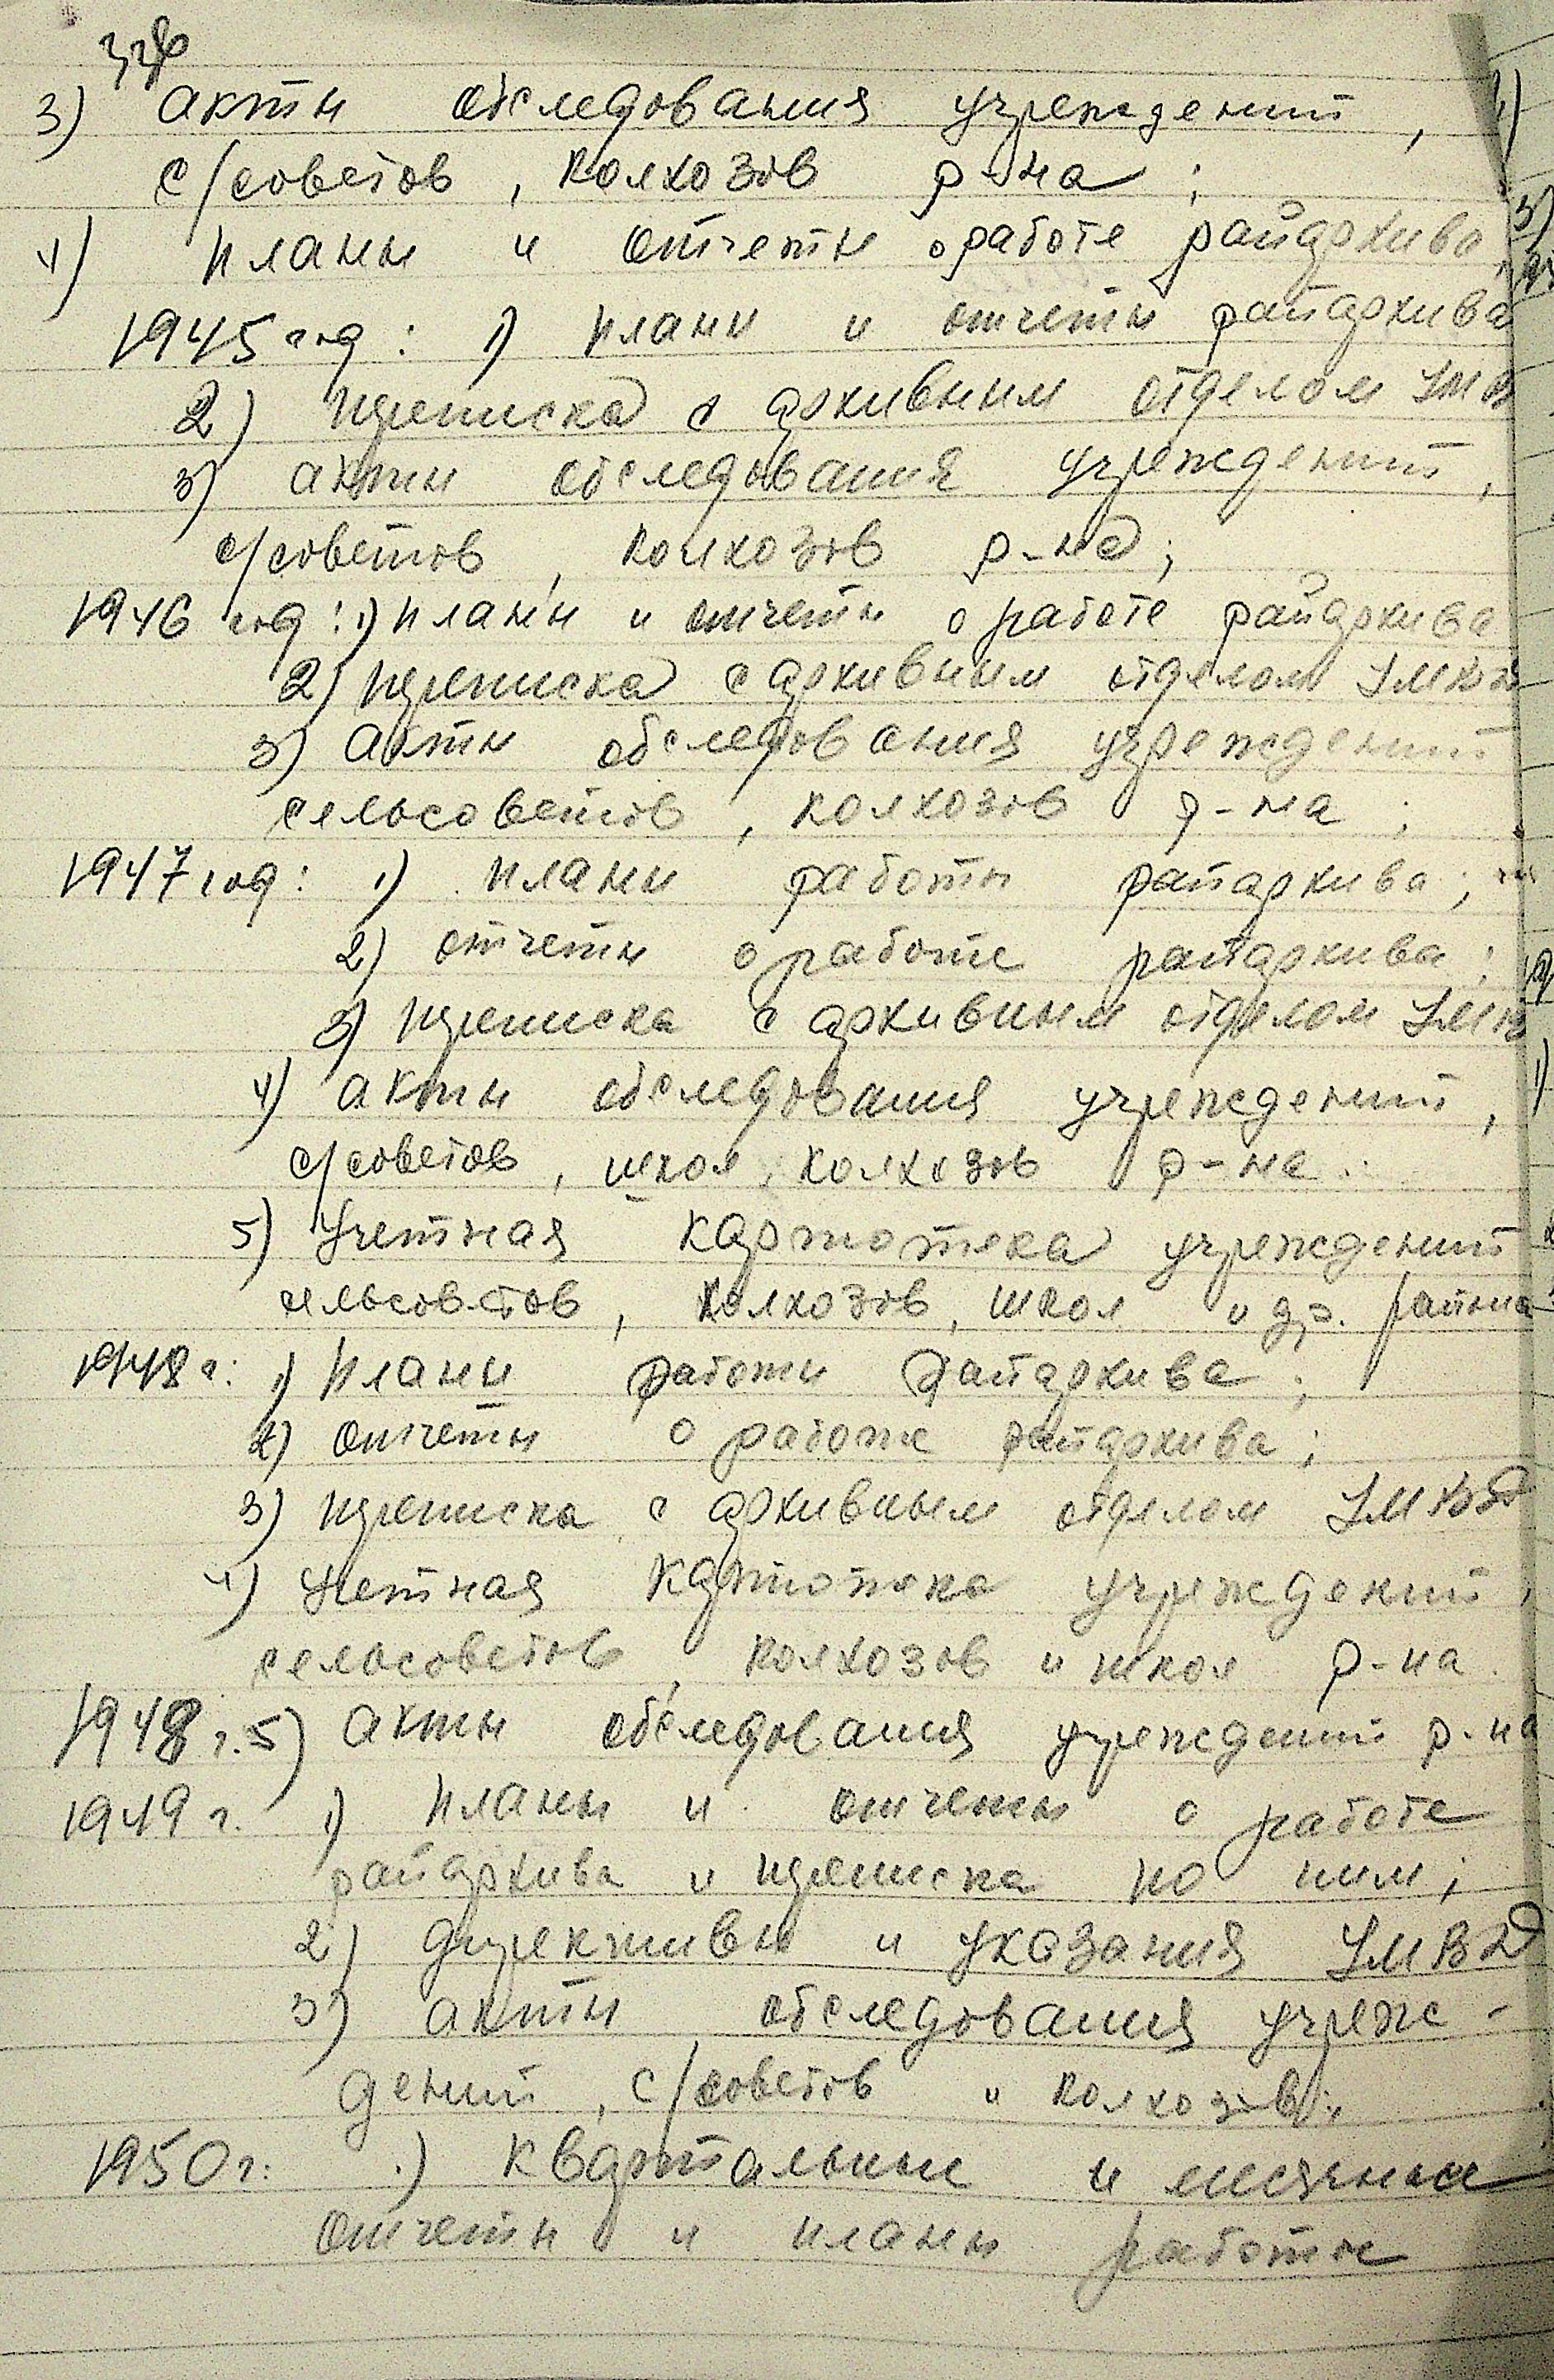 3) акты обследования учреждений,
с/советов, колхозов р-на;
4) планы и отчеты о работе райархива,
1945 год: 1) планы и отчеты райархива
2) переписка с архивным отделом
3) акты обследования учреждений,
с/советов, колхозов р-на;
1946 год: 1) планы и отчеты о работе райархива
2) переписка с архивным отделом УМВД
3) акты обследования учреждений
сельсоветов, колхозов р-на;
1947 год: 1) планы работы райархива;
2) отчеты о работе райархива;
3) переписка с архивным отделом УМВ
4) акты обследования учреждений,
с/советов, школ, колхозов р-на.
5) Учетная картотека учреждений
сельсоветов, колхозов, школ и др. района
1948 г: 1) планы работы райархива;
2) отчеты о работе райархива;
3) переписка с архивным отделом УМВД
4) Учетная картотека учреждений,
сельсоветов, колхозов и школ р-на.
1948 г. 5) акты обследования учреждений р-на
1949 г. 1) планы и отчеты о работе
райархива и переписка по ним;
2) директивы и указания УМВД
3) акты обследования учреж-
дений, с/советов и колхозов;
1950 г: 1) квартальные и месячные
отчеты и планы работы